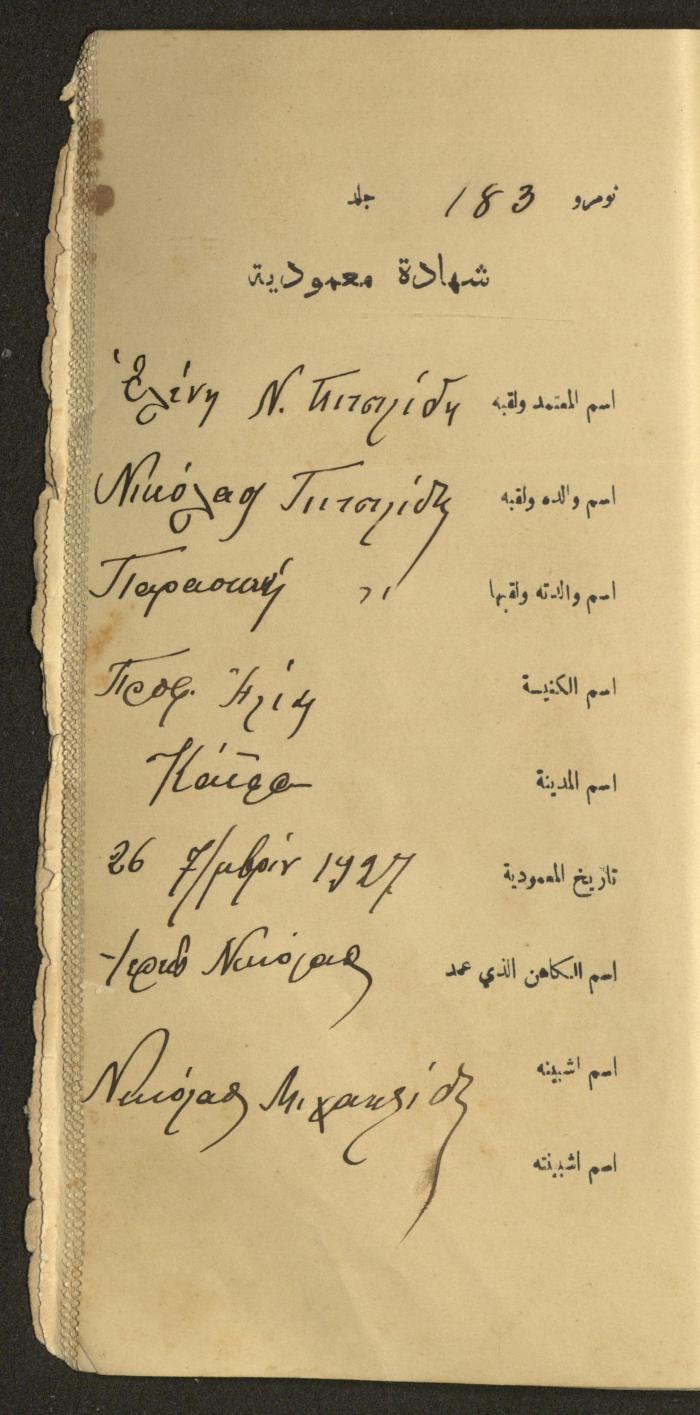 نومرو 183 جلد
شهادة معمودية
اسم المعتمد ولقبه Ἑλένη Ν.
اسم والده ولقبه Νικόλαος
اسم والدته ولقبها Παρασκευή 〃
اسم الكنيسة Προφ. Ἠλίας
اسم المدينة Κάϊρο
تاريخ المعمودية 26 7/μβρίου 1927
اسم الكاهن الذي عمد Ἱερεὺς Νικόλαος
اسم اشبينه Νικόλαος Μιχαηλίδης
اسم اشبينته